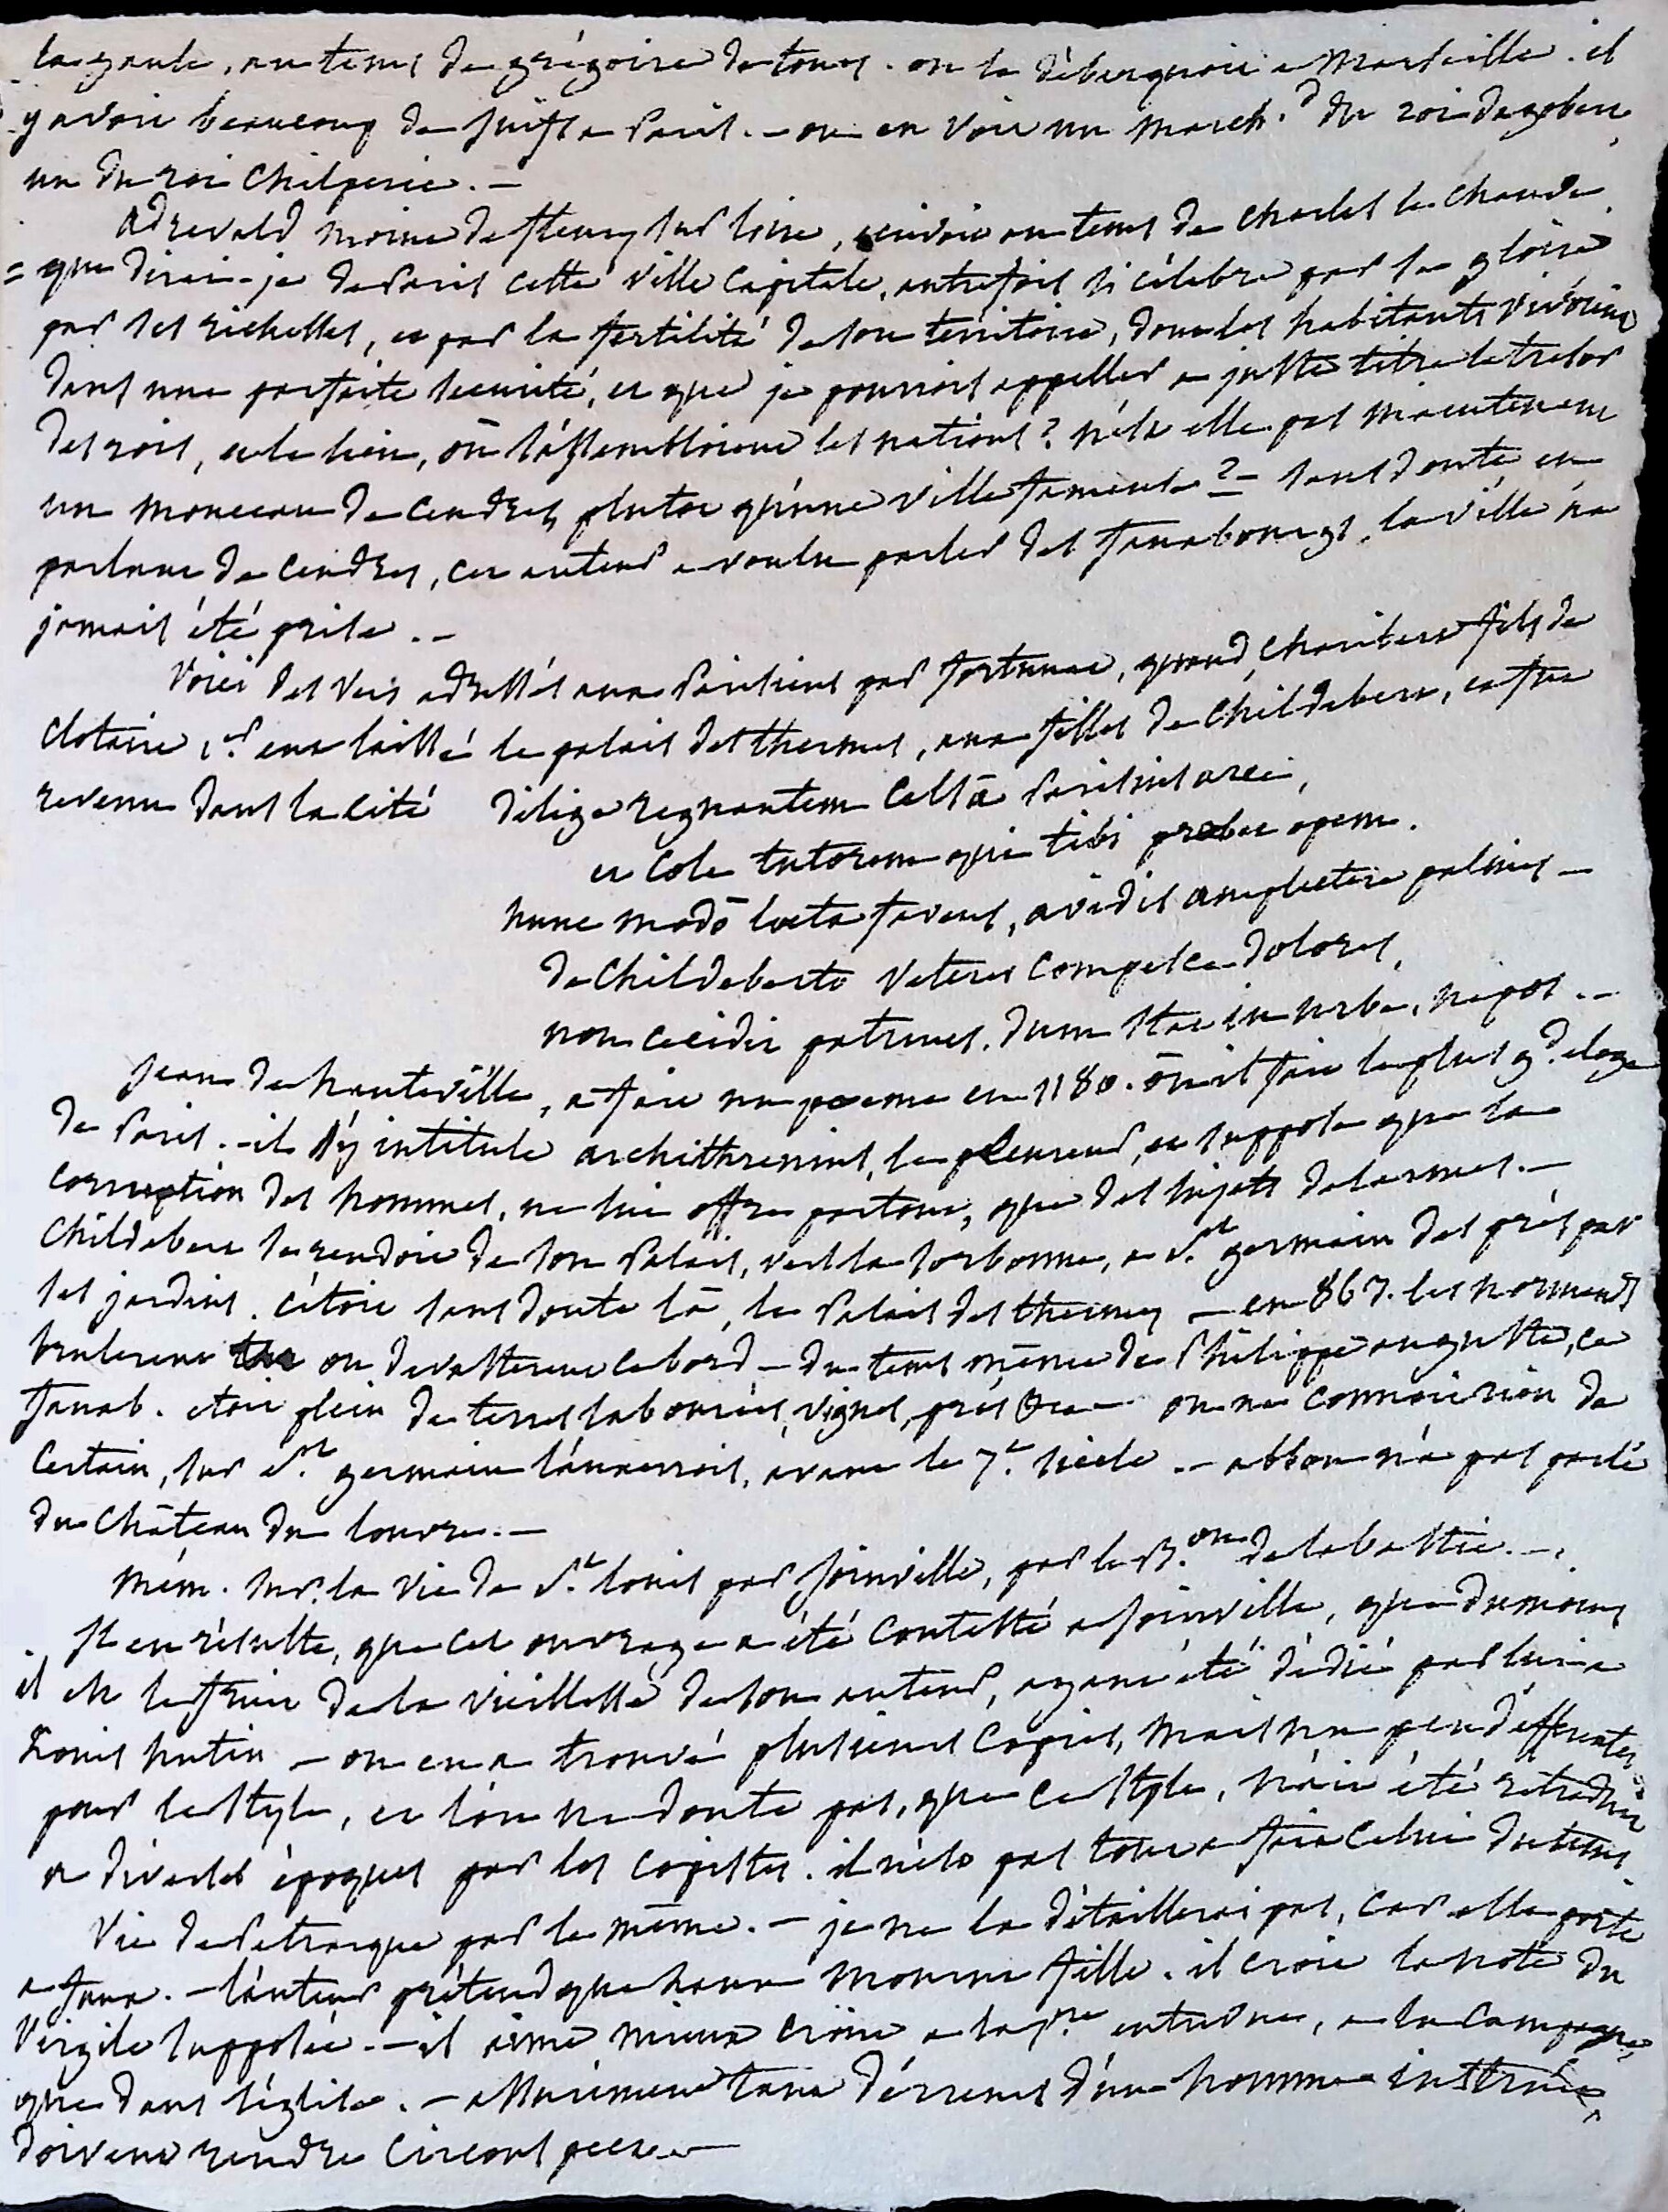 la gaule, au tems de grégoire de tours. on le débarquoit a Marseille. il
y avoit beaucoup de juifs a Paris. - on en voit un march.d du roi dagobert
un du roi Chilperic. -
adrevald moine de fleury sur loire, ecrivoit au tems de charles le chauve
= que dirai-je de Paris cette ville capitale, autrefois si célebre par sa gloire
par ses richesses, et par la fertilité de son territoire, dont les habitants vivoient
dans une parfaite securité, et que je pourrois appeller a juste titre le tresor
des rois, et le lien, où s'assembloient les nations? n'est elle pas maintenant
un monceau de cendres, plutot qu'une ville fameuse? - sans doute en
parlant de cendres, cet auteur a voulu parler des fauxbourgs. la ville n'a
jamais été prise. -
Voici des vers adressés aux Parisiens par fortunat, quand charibert fils de
clotaire 1.er eut laissé le palais des thermes, aux filles de Childebert, et fut
revenu dans la cité dilige regnantem celsâ Parisius arce,
et cole tutorem qui tibi prebet opem.
hunc modò laeta favens, avidis amplectere palmis -
de Childeberto veteres compesce dolores,
non cecidit patruus, dum stat in urbe, nepos. -
Jean de hauteville, a fait un poeme en 1180. où il fait le plus g.d eloge
de Paris. - il s'y intitule archithrenius, le pleureur, et suppose que la
corruption des hommes, ne lui offre partout, que des sujets de larmes. -
Childebert se rendoit de son Palais, vers la sorbonne, a S.t germain des prés par
ses jardins. c'étoit sans doute là, le Palais des thermes - en 867. les normands
brulerent ou devasterent ce bord - du tems même de Philippe auguste, ce
fauxb. etoit plein de terres labourées, vignes, prés &c - on ne connoit rien de
certain, sur S.t germain l'auxerrois, avant le 7.e siècle. - abbon n'a pas parlé
du château du louvre. -
mém. sur la vie de S.t louis par Joinville, par le B.on de la bastie. -
Il en résulte, que cet ouvrage a été contesté a Joinville, que du moins
il est le fruit de la vieillesse de son auteur, ayant été dédié par lui a
Louis hutin - on en a trouvé plusieurs copies, mais un peu différentes
pour le style, et l'on ne doute pas, que ce style, n'ait été retraduit
a diverses époques par les copistes. il n'est pas tout a fait celui du tems.
Vie de Petrarque par le même. - je ne la détaillerai pas, car elle porte
a faux. - l'auteur prétend que Laure mourut fille. il croit la note du
Virgile supposée. - il aime mieux croire a la p.re entrevue, a la campagne,
que dans l'église. - assurément tant d'erreurs d'un homme instruit,
doivent rendre circonspect. -